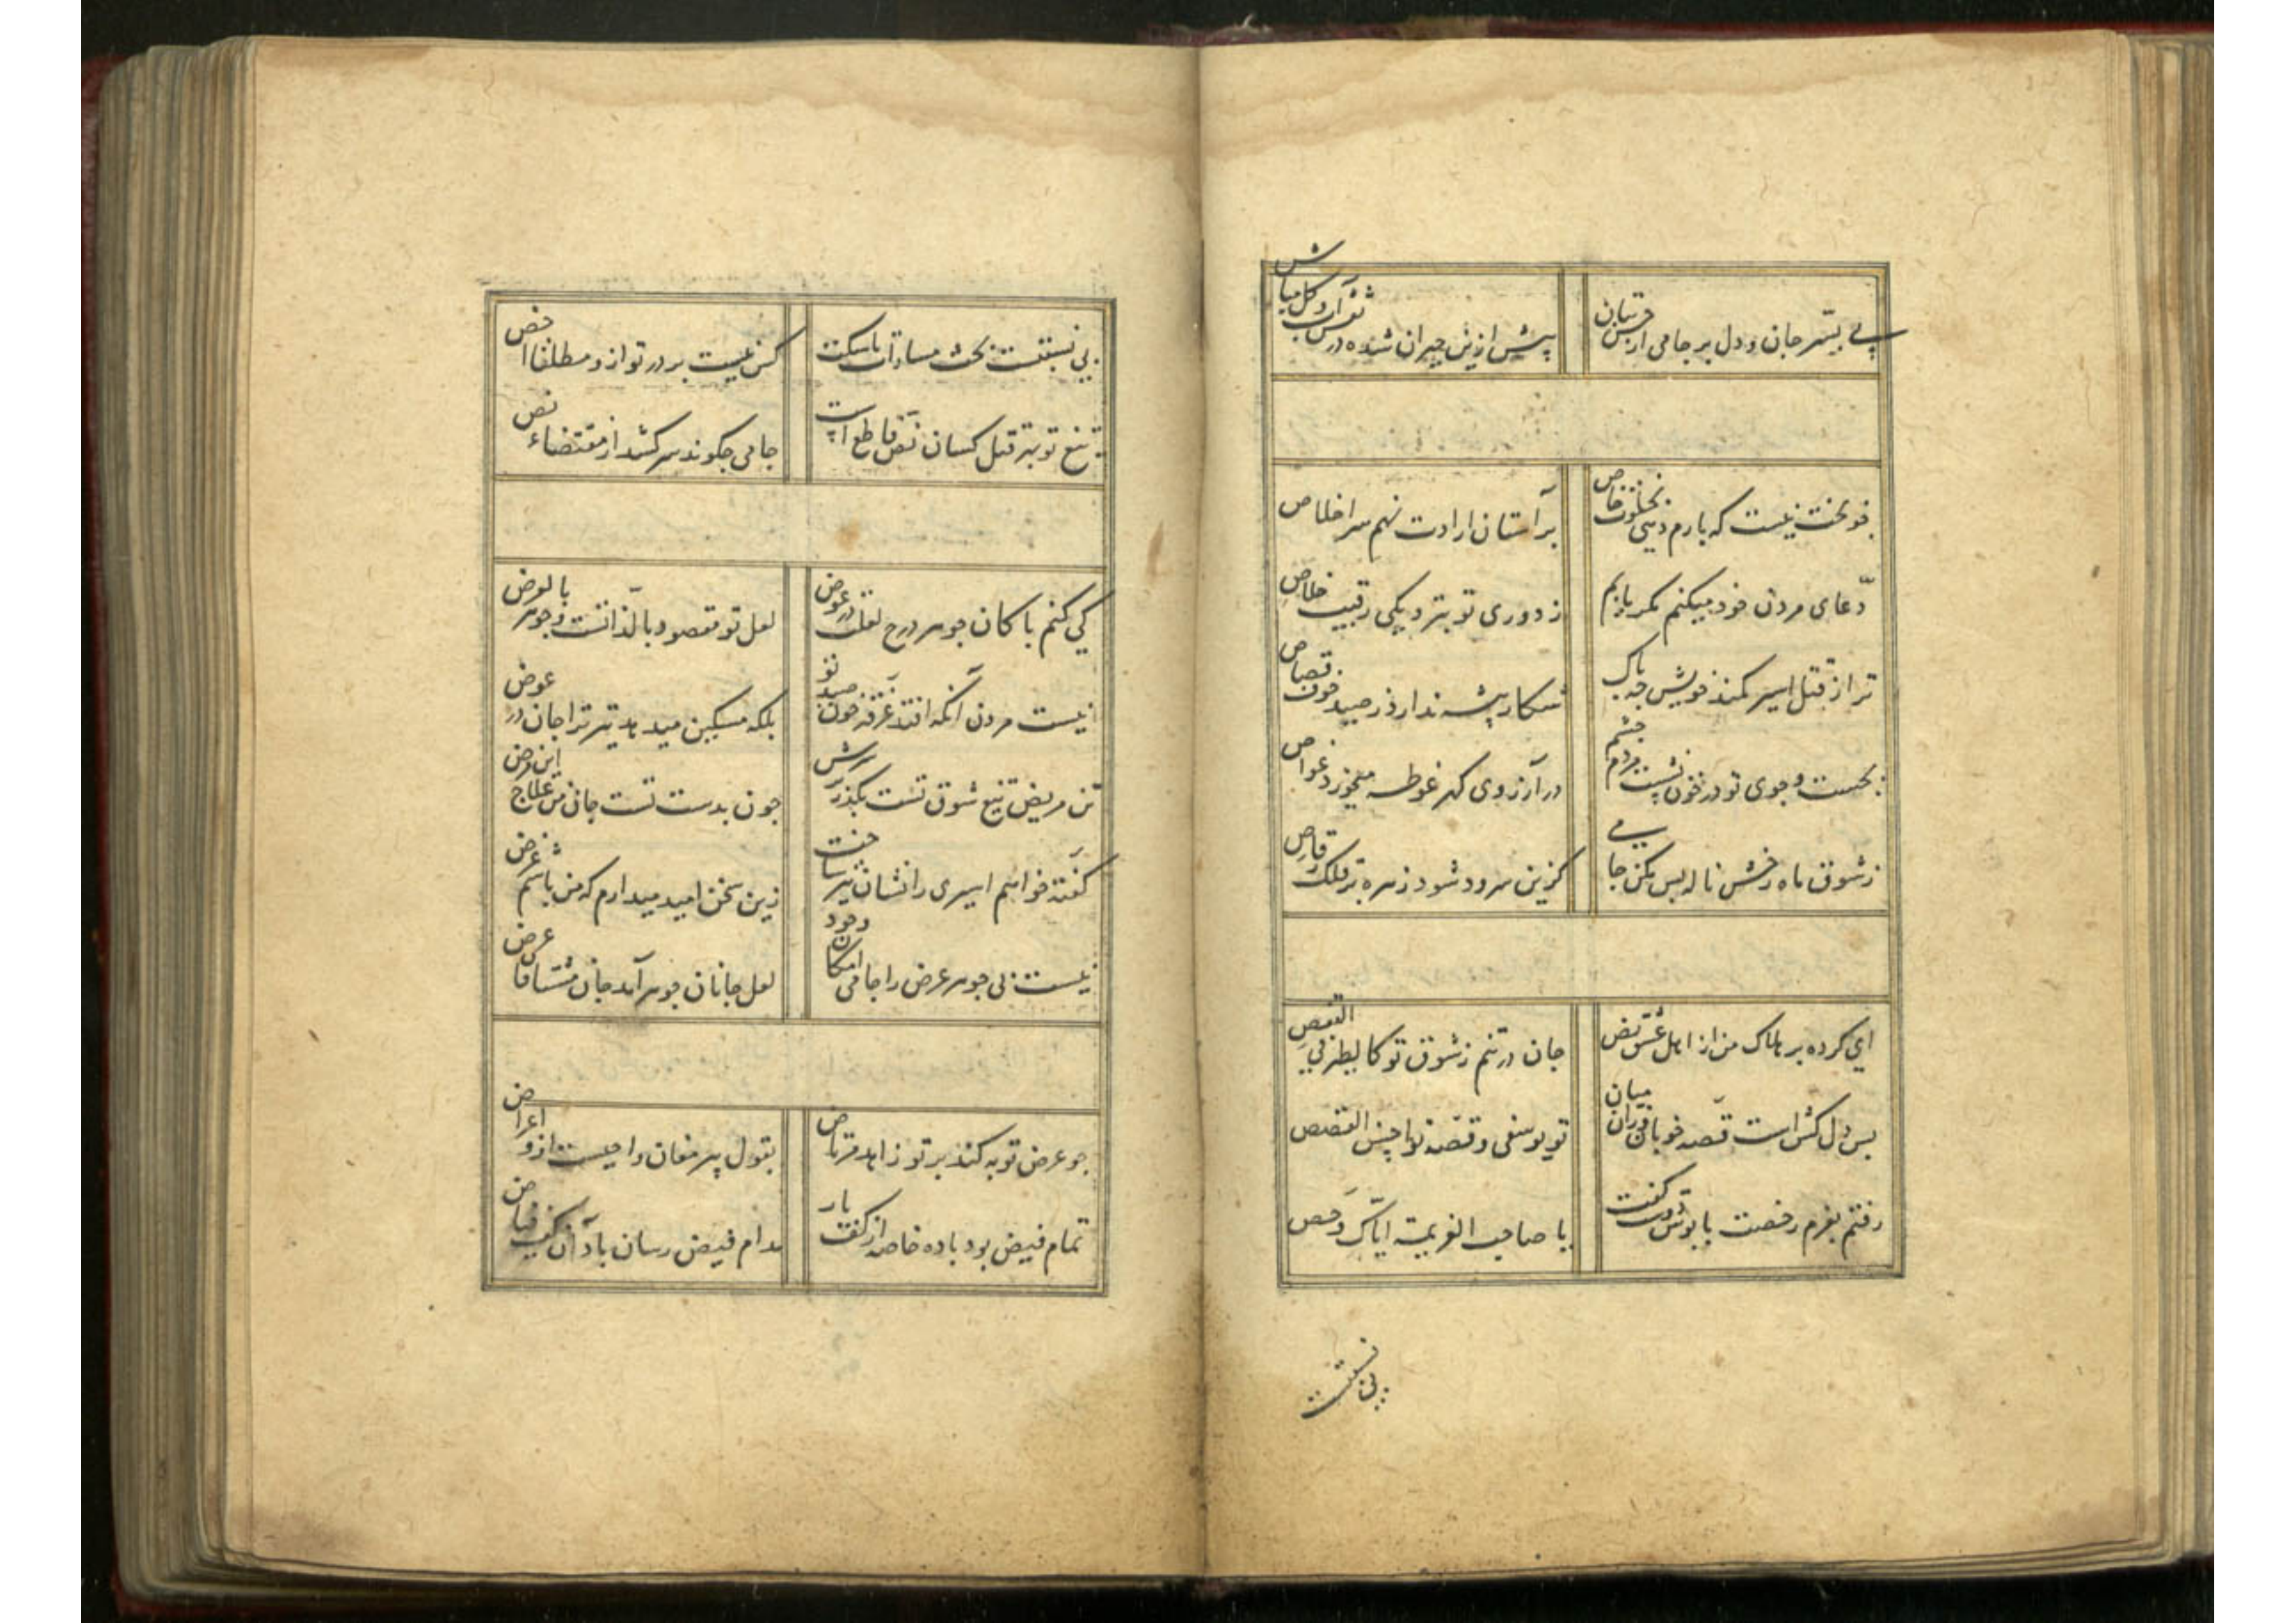 پی بستر جان و دل بر جامی از خوبان
پیش ازین حیران شده در نقش آب و گل مباش
خو بخت نیست که یارم دمی بخلوت خاص
بر آستان ارادت نهم سر اخلاص
دعای مردن خود میکنم مکر یابم
ز دوری تو بنزدیکی رقیب خلاص
ترا ز قتل اسیر کمند خویش چه باک
شکار پیشه ندارد ز صید خون قصاص
بجست و جوی تو در خون نشست مردم چشم
در آرزوی کهر غوطه میخورد غواص
ز شوق ماه رخش ناله بس مکن جامی
کزین سرود شود زهره بر فلک رقاص
ای کرده بر هلاک من از اهل عشق نص
جان در تنم ز شوق تو کالطیر فی القفص
بس دل کش است قصه خوبان و زان میان
تو یوسفی و قصه تو احسن القصص
رفتم بعزم رخصت پابوش دوست گفت
یا صاحب العزیمة ایاک و رخص
بی نسبتست
بی نسبتست بحث مساوات با سکت
کس نیست بر در تو ازو مطلقا اخص
تیغ تو بهر قتل کسان نص قاطع است
جامی چکونه سر کشد از مقتضاء نص
کی کنم با کان جوهر درج لعلت در عوض
لعل تو مقصود بالذاتست و جوهر بالعرض
نیست مردن آنکه افتد غرقه خون صید تو
بلکه مسکین میدهد تیر ترا جان در عوض
تن مریض تیغ شوق تست بکذر بر سرش
چون بدست تست جان من علاج این مرض
کفته خواهم اسیری را نشان تیر ساخت
زین سخن امید میدارم که من باشم غرض
نیست بی جوهر عرض را جامی امکان وجود
لعل جانان جوهر آمد جان مشتاقان عرض
چو عرض توبه کند بر تو زاهد مرتاض
بقول پیر مغان واجبست ازو اعراض
تمام فیض بود باده خاصه از کف یار
مدام فیض رسان باد آن کف فیاض